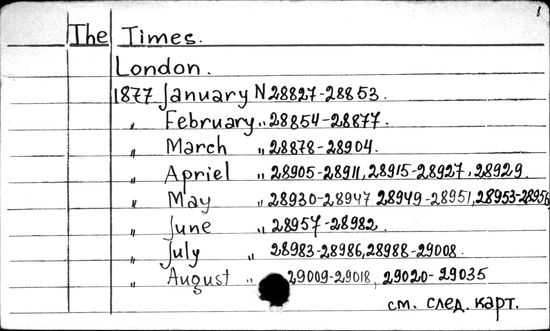 1
The Times.
London.
1877 January N 28827-28853.
" February " 28854-28877.
" March " 28878-28904.
" Apriel " 28905-28911, 28915-28927, 28929.
" May " 28930-28947 28949-28951, 28953-28956
" June " 28957-28982.
" July " 28983-28986, 28988-29008.
" August " 29009-29018, 29020-29035
см. след. карт.